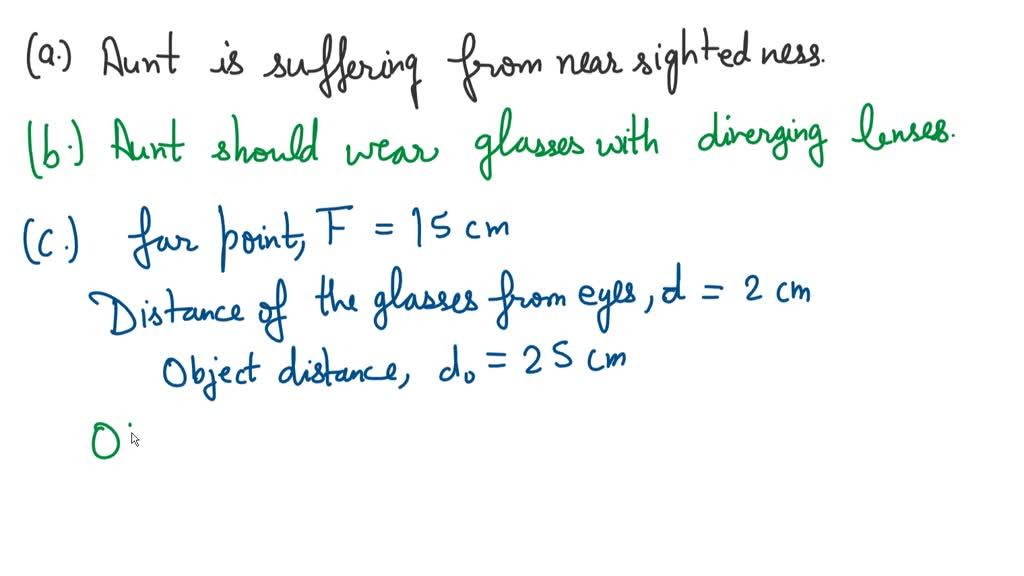 (a.) Aunt is suffering from near sighted ness.
(b.) Aunt should wear glasses with diverging lenses.
(c.) far point, F = 15 cm
Distance of the glasses from eyes, d = 2 cm
Object distance, d₀ = 25 cm
Oi